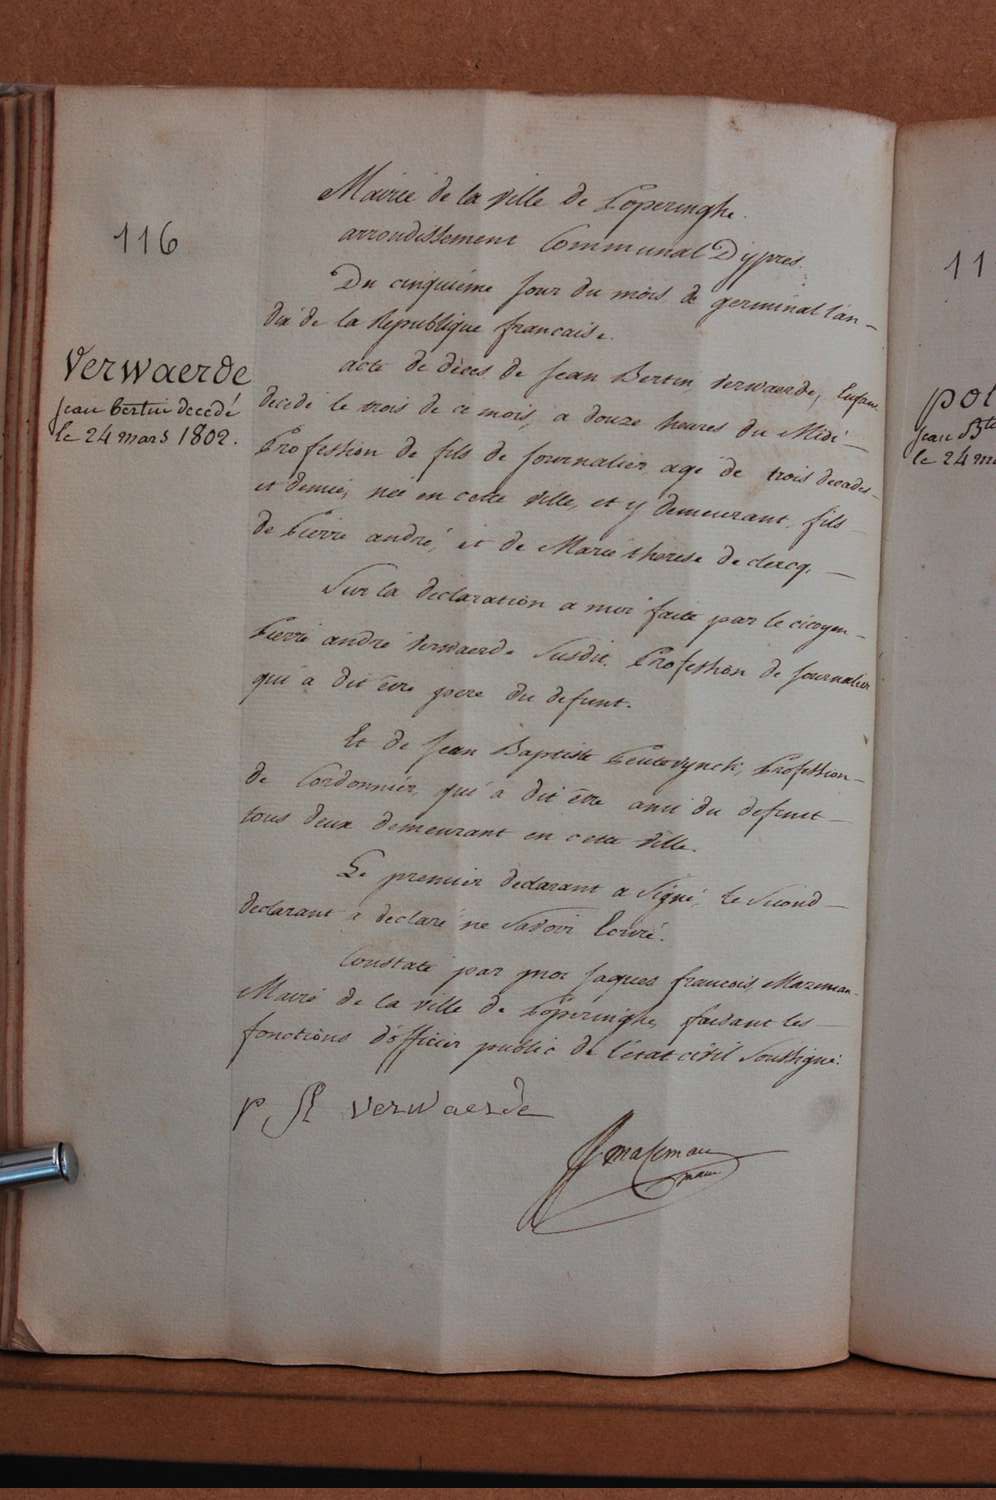 116
Verwaerde
Jean bertin decedé
le 24 mars 1802.
Mairie de la ville de Poperinghe.
arrondissement Communal D'ypres.
Du cinquieme jour du mois de germinal l'an –
dix de la Republique francaise.
acte de décès de Jean Bertin Verwaerde, Enfant
decedé le trois de ce mois, a douze heures du Midi –
Profession de fils de Journalier agé de trois decades –
et demie, née en cette ville, et y demeurant, fils –
de Pierre andré, et de Marie therese de clercq, –
Sur la declaration a moi faite par le citoyen –
Pierre andré Verwaerde susdit, Profession de journalier
qui a dit être pere du defunt.
Et de Jean Baptiste Profession –
de Cordonnier, qui a dit être ami du defunt –
tous deux demeurant en cette ville.
Le premier declarant a signé, le second –
declarant a declaré ne savoir Ecrire.
Constaté par moi Jaques francois Mazeman –
Maire de la ville de Poperinghe, faisant les –
fonctions d'officier public de l'état civil soussigné.
p verwaerde
maseman
maire
11
pot
Jean Bte
le 24 ma